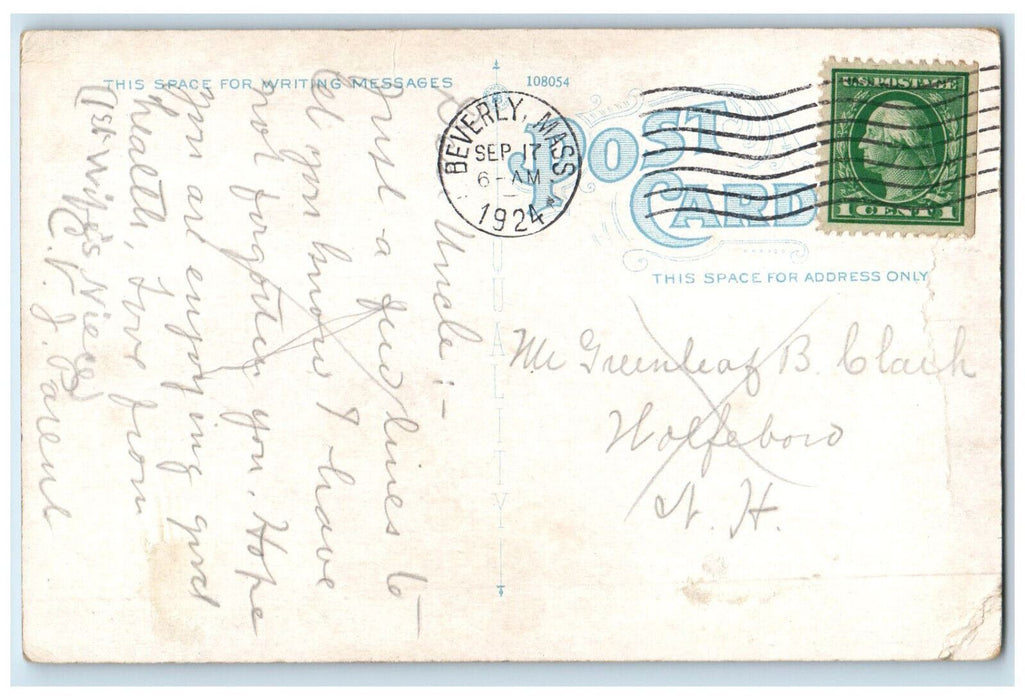 THIS SPACE FOR WRITING MESSAGES
108054
POST CARD
THIS SPACE FOR ADDRESS ONLY
BEVERLY, MASS.
SEP 17
6-AM
1924
U.S. POSTAGE
1 CENT 1
QUALITY
Uncle:-
Just a few lines to
let you know I have
not forgotten you. Hope
you are enjoying good
health, Love from
C. J. Parent
(1st Wife's Niece)
Mr Greenleaf B. Clark
Wolfeboro
N. H.